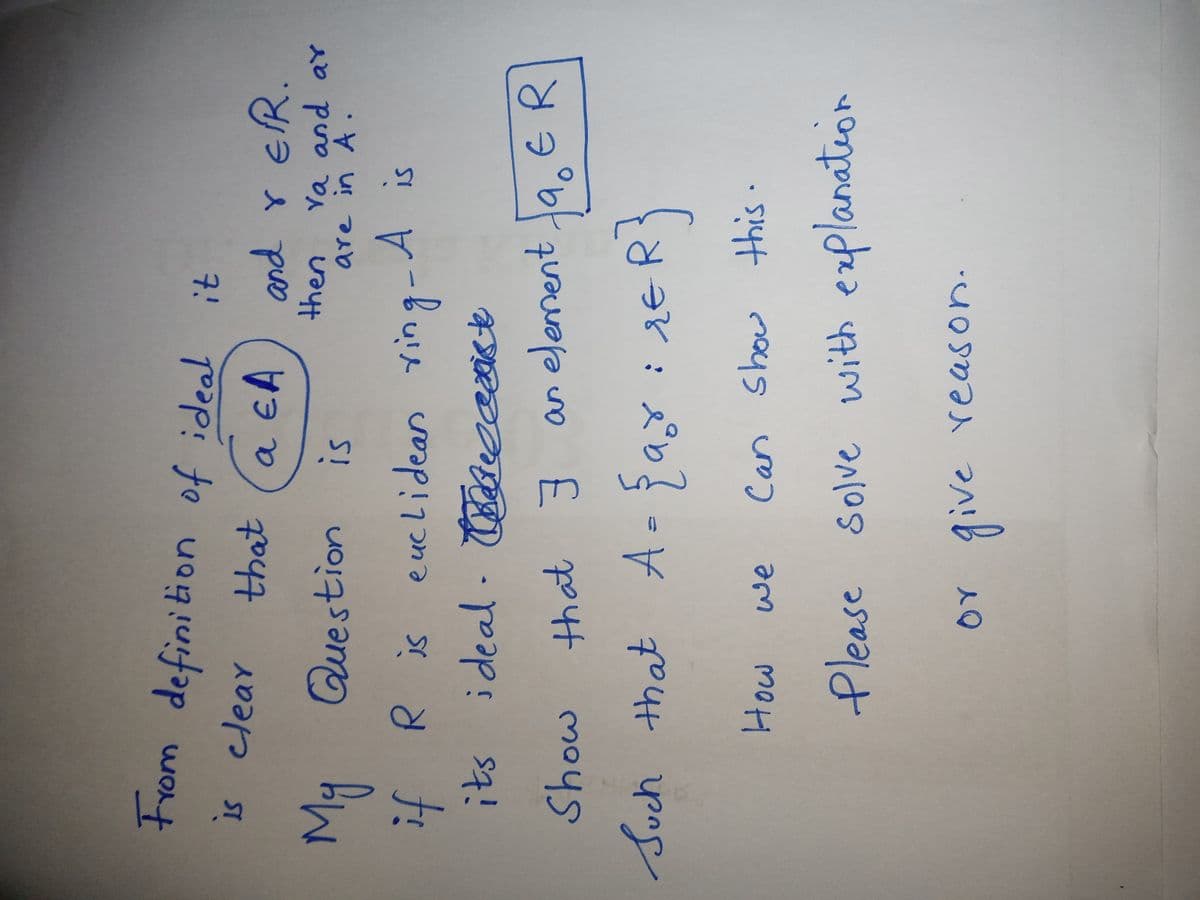 From definition of ideal it
is clear that a ∈ A and r ∈ R.
then ra and ar
are in A.
My Question is
if R is eucLidean ring - A is
its ideal.
Show that ∃ an element, a₀ ∈ R
Such that A = {a₀r : r ∈ R}
How we Can show this.
Please Solve with explanation
or give reason.